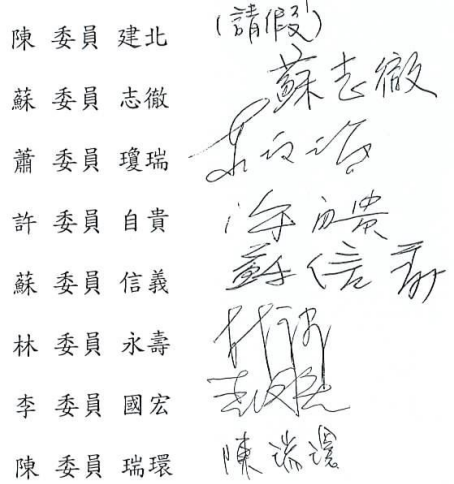 陳 委員 建北 (請假)
蘇 委員 志徹 蘇志徹
蕭 委員 瓊瑞
許 委員 自貴 許自貴
蘇 委員 信義 蘇信義
林 委員 永壽
李 委員 國宏
陳 委員 瑞環 陳瑞環